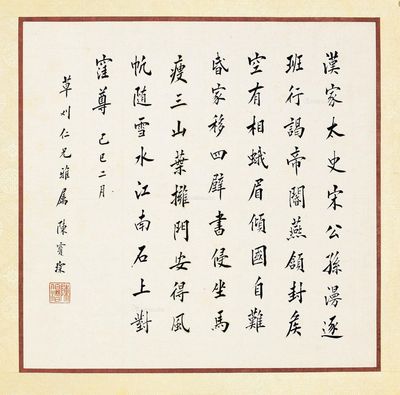 漢家太史宋公孫漫逐
班行謁帝閽燕頷封侯
空有相蛾眉傾國自難
昏家移四壁書侵坐馬
瘦三山葉擁門安得風
帆隨雪水江南石上對
窪尊 己巳二月
仁兄雅屬 陳寶琛